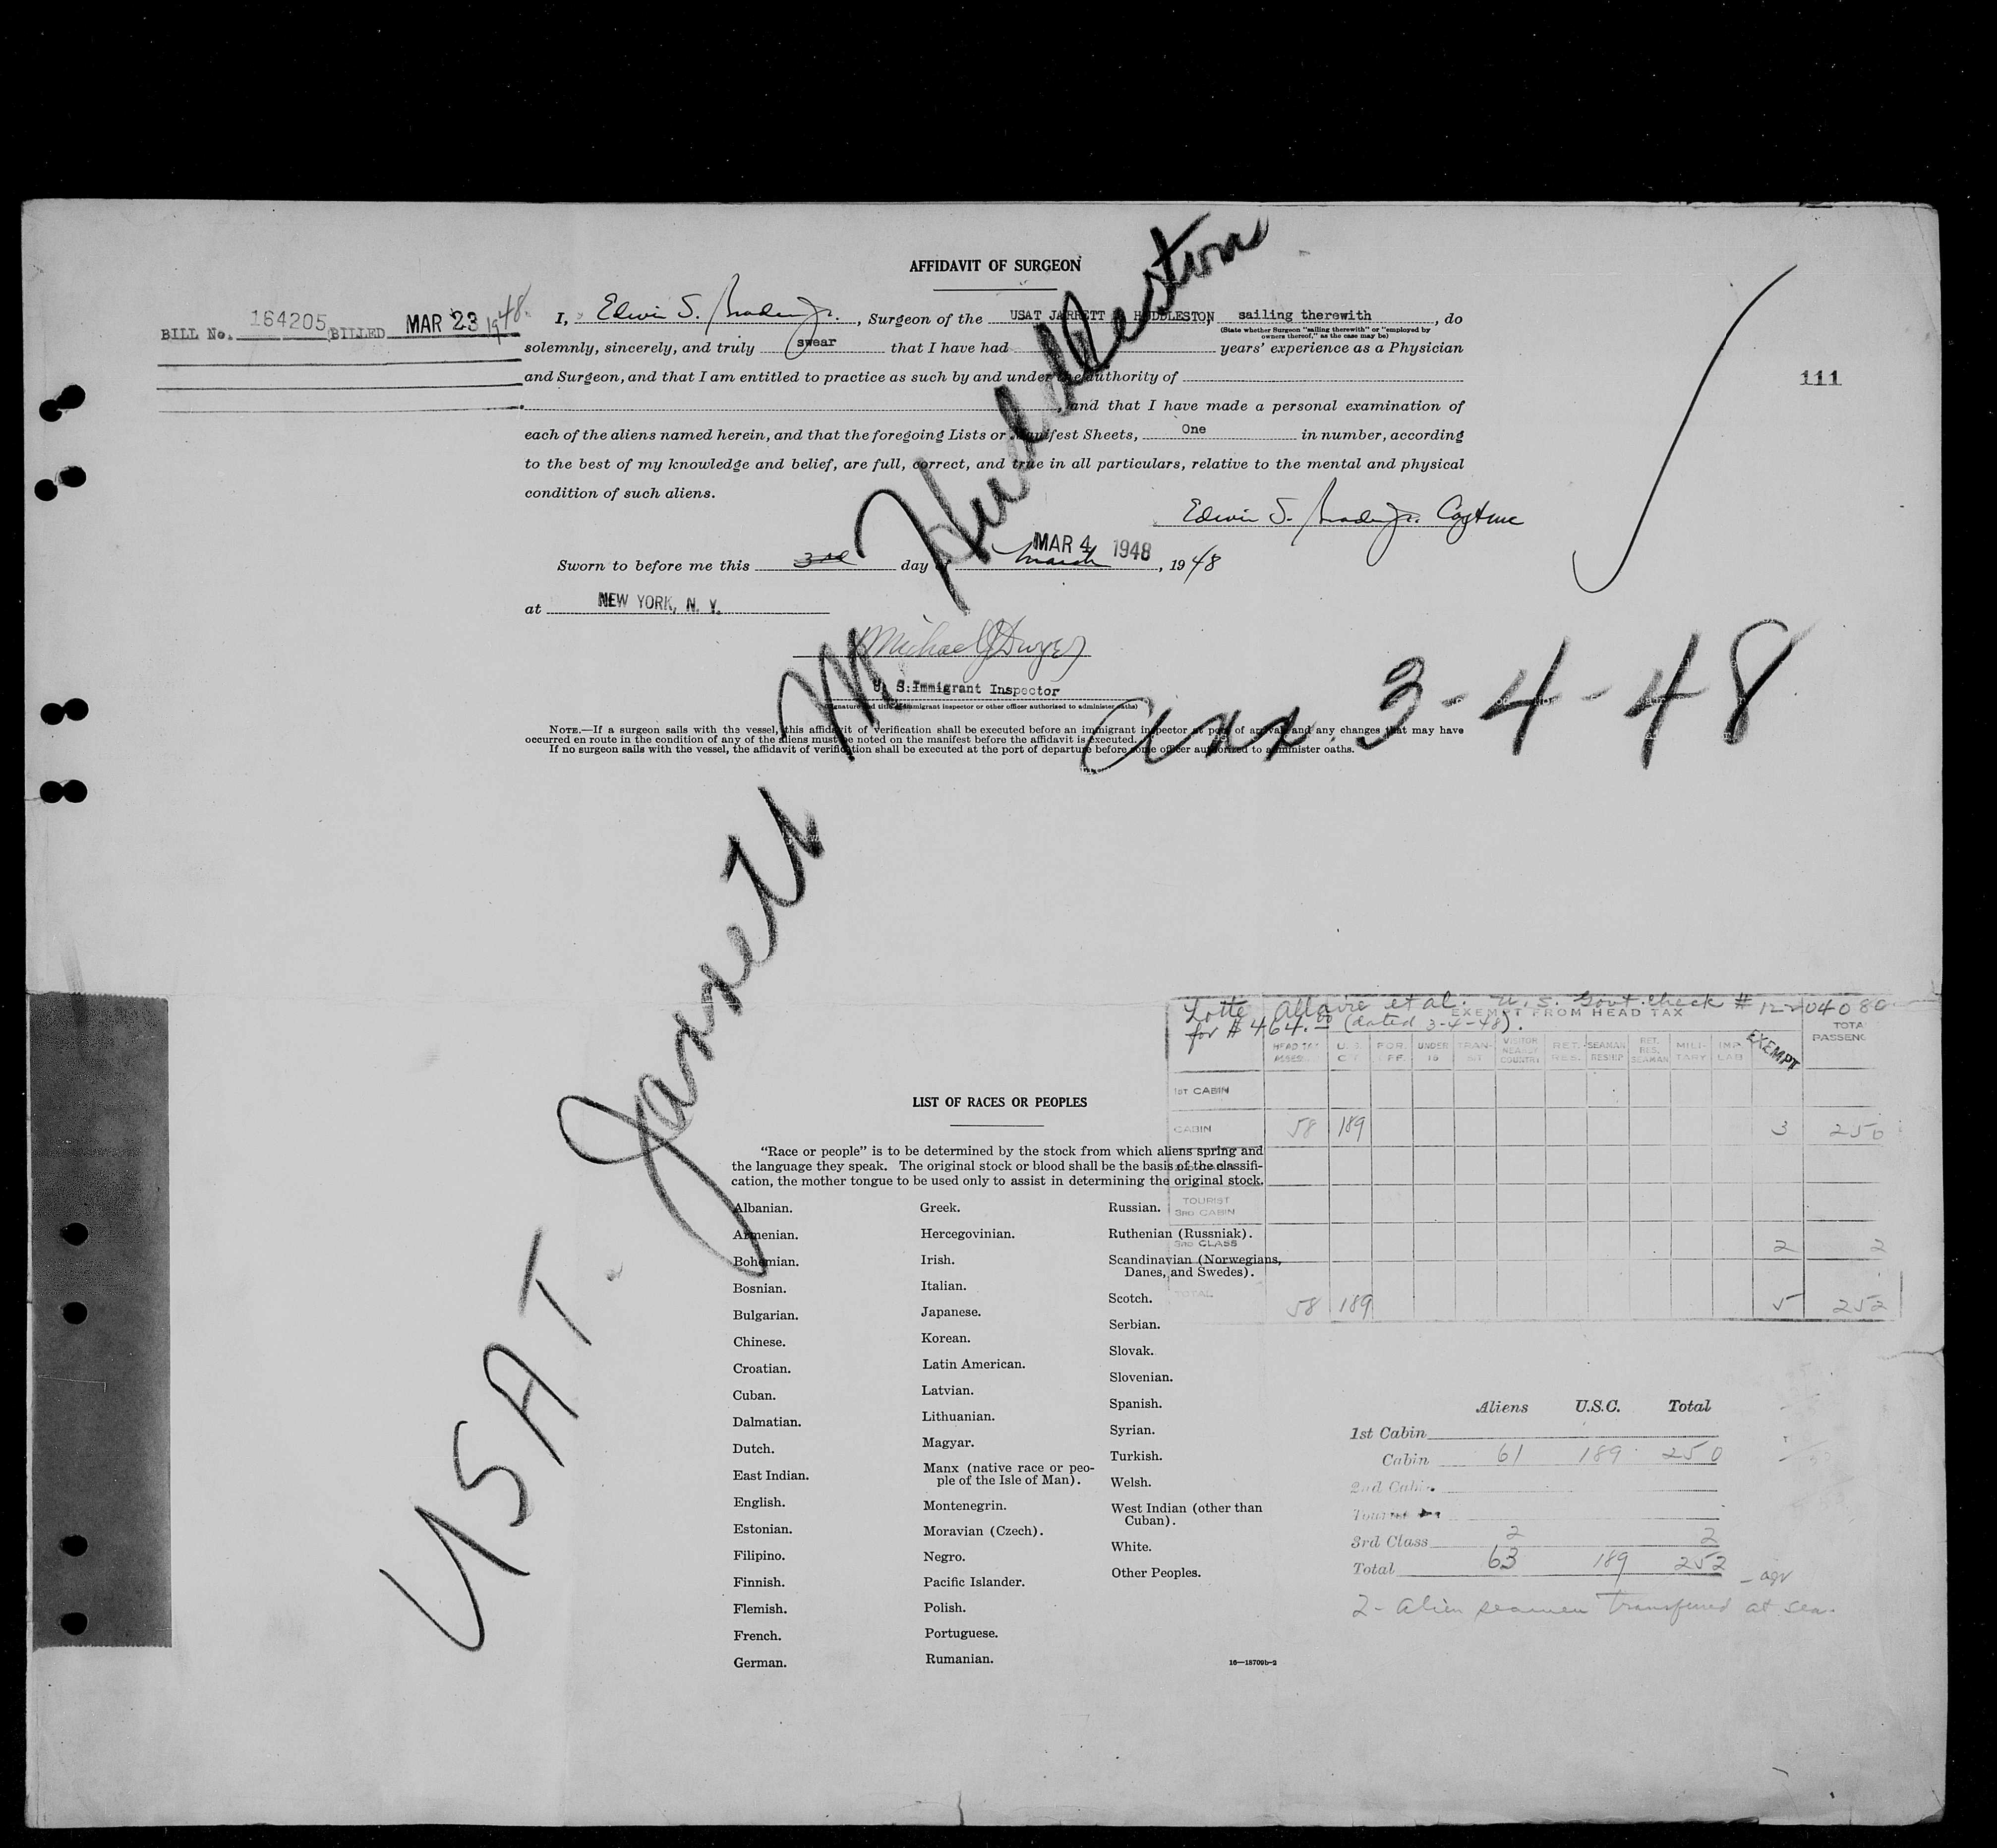 AFFIDAVIT OF SURGEON
BILL No. 164205 BILLED MAR 23 1948.
I, Edwin S. Jr., Surgeon of the USAT JARRETT M HUDDLESTON, sailing therewith, do
(State whether Surgeon "sailing therewith" or "employed by
owners thereof," as the case may be)
solemnly, sincerely, and truly swear that I have had years' experience as a Physician
and Surgeon, and that I am entitled to practice as such by and under the authority of
111
, and that I have made a personal examination of
each of the aliens named herein, and that the foregoing Lists or Manifest Sheets, One in number, according
to the best of my knowledge and belief, are full, correct, and true in all particulars, relative to the mental and physical
condition of such aliens.
Edwin S. Jr.
MAR 4 1948
Sworn to before me this 3rd day of March, 1948
at NEW YORK, N. Y.
Michael J Dwyer
U. S. Immigrant Inspector
(Signature and title of immigrant inspector or other officer authorized to administer oaths)
NOTE.—If a surgeon sails with the vessel, this affidavit of verification shall be executed before an immigrant inspector at port of arrival and any changes that may have
occurred en route in the condition of any of the aliens must be noted on the manifest before the affidavit is executed.
If no surgeon sails with the vessel, the affidavit of verification shall be executed at the port of departure before some officer authorized to administer oaths.
USAT. Jarrett M Huddleston
arr. 3-4-48
Lotte Allaire et al. U.S. Govt. check # 12204080
for $464.00 (dated 3-4-48).
EXEMPT FROM HEAD TAX
HEAD TAX U.S. FOR. UNDER 16 TRAN-SIT VISITOR NEARBY COUNTRY RET. RES. SEAMAN RESHIP RET. RES. SEAMAN MILI-TARY IMP LAB EXEMPT TOTAL PASSENG
1ST CABIN
CABIN 58 189 3 250
TOURIST
3RD CABIN
3RD CLASS 2 2
TOTAL 58 189 5 252
LIST OF RACES OR PEOPLES
"Race or people" is to be determined by the stock from which aliens spring and
the language they speak. The original stock or blood shall be the basis of the classifi-
cation, the mother tongue to be used only to assist in determining the original stock.
Albanian.
Armenian.
Bohemian.
Bosnian.
Bulgarian.
Chinese.
Croatian.
Cuban.
Dalmatian.
Dutch.
East Indian.
English.
Estonian.
Filipino.
Finnish.
Flemish.
French.
German.
Greek.
Hercegovinian.
Irish.
Italian.
Japanese.
Korean.
Latin American.
Latvian.
Lithuanian.
Magyar.
Manx (native race or peo-
ple of the Isle of Man).
Montenegrin.
Moravian (Czech).
Negro.
Pacific Islander.
Polish.
Portuguese.
Rumanian.
Russian.
Ruthenian (Russniak).
Scandinavian (Norwegians,
Danes, and Swedes).
Scotch.
Serbian.
Slovak.
Slovenian.
Spanish.
Syrian.
Turkish.
Welsh.
West Indian (other than
Cuban).
White.
Other Peoples.
16—18709b-2
Aliens U.S.C. Total
1st Cabin
Cabin 61 189 250
2nd Cabin
Tourist
3rd Class 2 2
Total 63 189 252
2 - alien seamen transferred at sea.